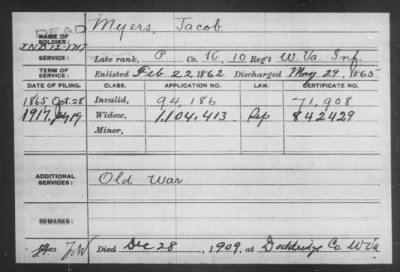 DEAD
NAME OF SOLDIER: Myers, Jacob
IND 12-1717
SERVICE: Late rank, P Co. K, 10 Reg't W. Va. Inf.
TERM OF SERVICE: Enlisted Feb 22 1862 Discharged May 29, 1865
DATE OF FILING. CLASS. APPLICATION NO. LAW. CERTIFICATE NO.
1865, Oct. 28 Invalid, 94,186 71,908
1917, July 19 Widow, 1,104,413 Rep 842429
Minor,
ADDITIONAL SERVICES: Old War
REMARKS:
Died Dec 28, 1909, at Doddridge Co. W Va